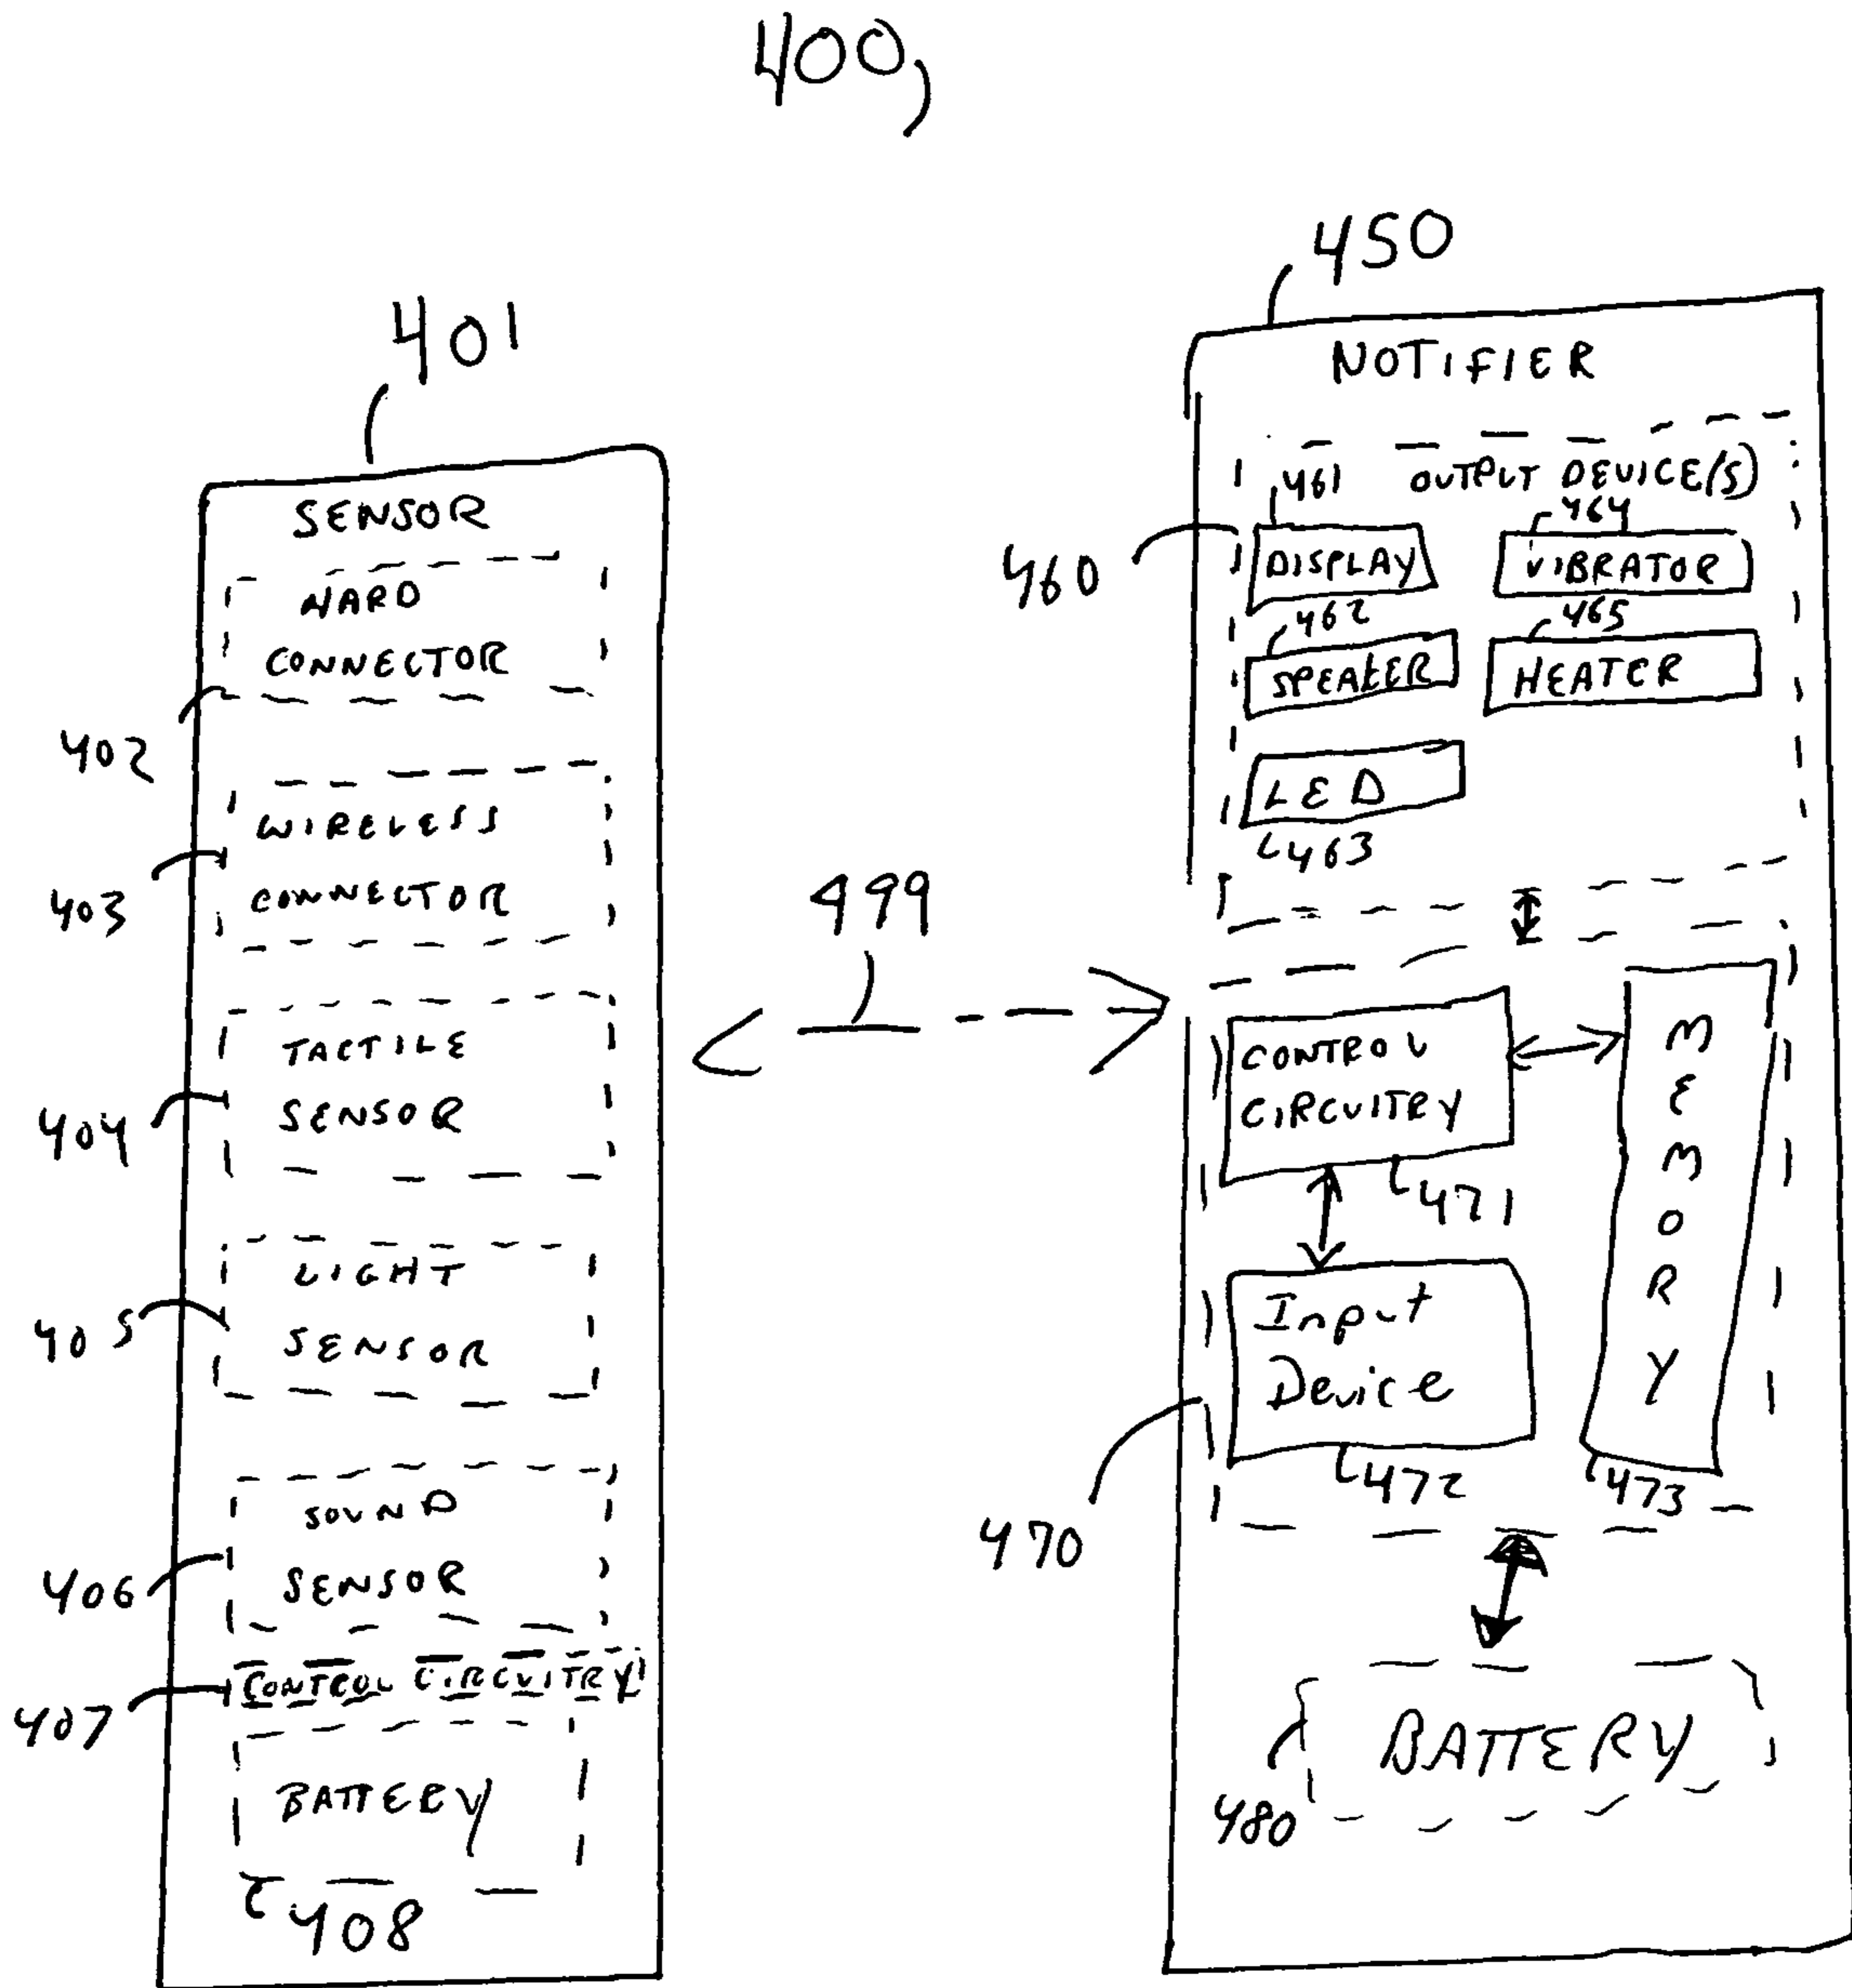 400
401
SENSOR
HARD
CONNECTOR
402
WIRELESS
CONNECTOR
403
TACTILE
SENSOR
404
LIGHT
SENSOR
405
SOUND
SENSOR
406
CONTROL CIRCUITRY
407
BATTERY
408
499
450
NOTIFIER
461 OUTPUT DEVICE(S)
464
460
DISPLAY
VIBRATOR
462
465
SPEAKER
HEATER
LED
463
CONTROL
CIRCUITRY
471
MEMORY
Input
Device
472
473
470
BATTERY
480